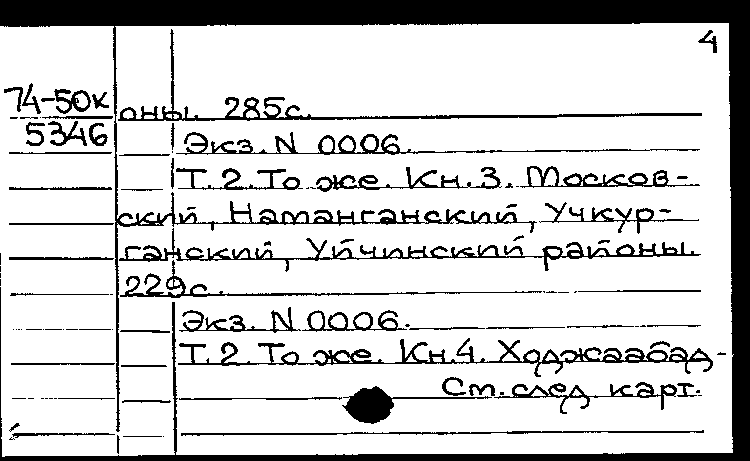 4
74-50к оны. 285с.
5346 Экз. N 0006.
Т.2. То же. Кн.3. Москов-
ский, Наманганский, Учкур-
ганский, Уйчинский районы.
229с.
Экз. N 0006.
Т.2. То же. Кн.4. Ходжаабад-
Ст. след. карт.